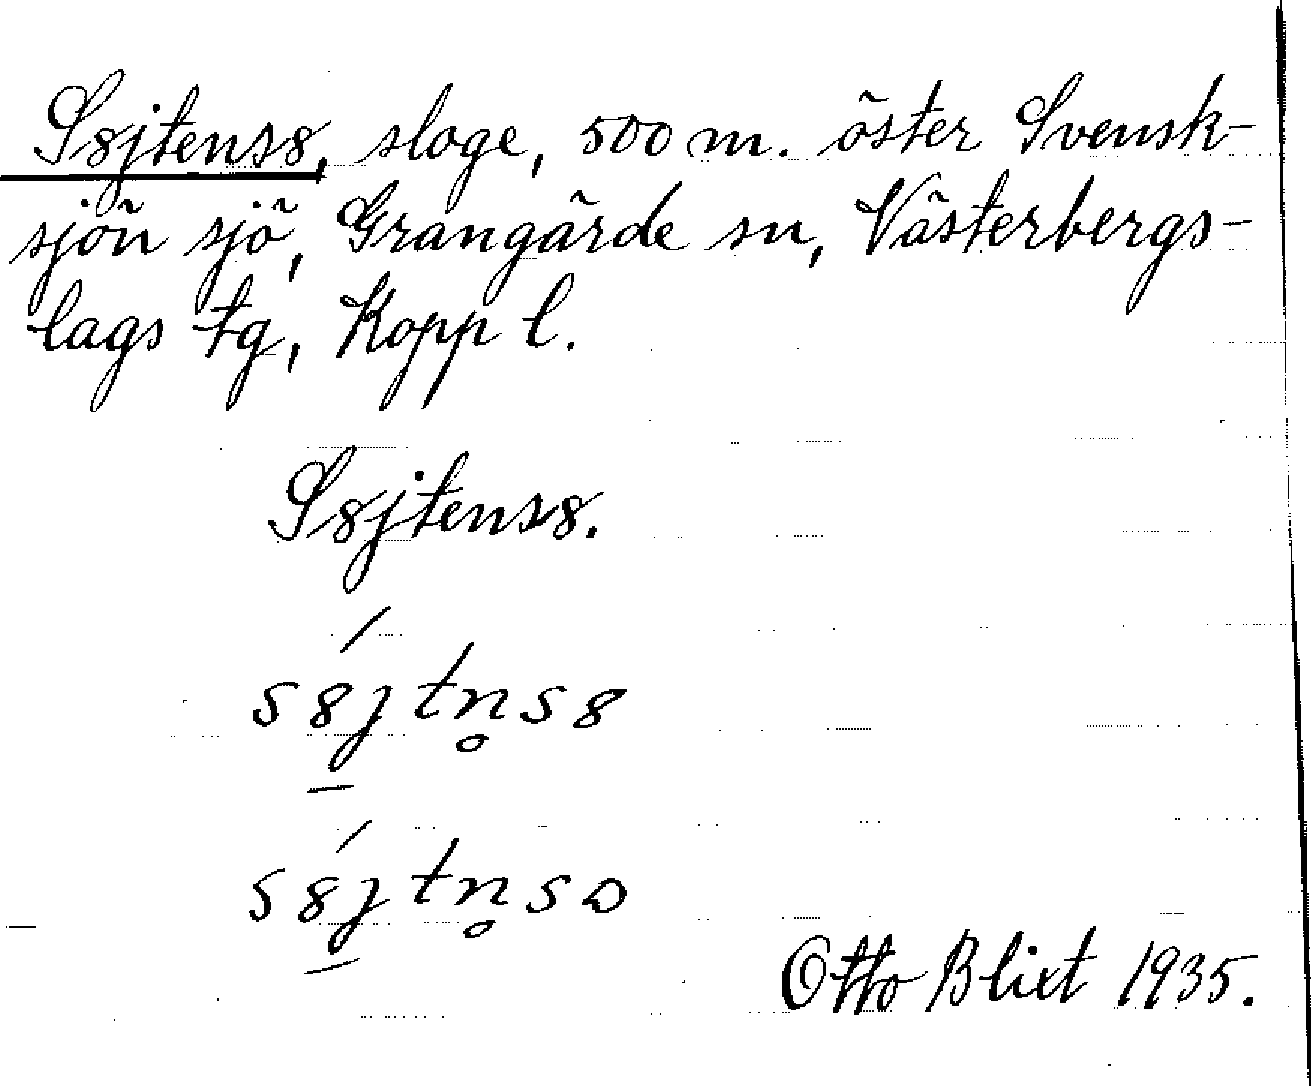 S8jtens8, sloge, 500 m. öster Svensk-
sjön sjö, Grangärde sn, Västerbergs-
lags tg, Kopp l.
S8jtens8.
s8́jtn̥s8
s8́jtn̥sɷ
Otto Blixt 1935.